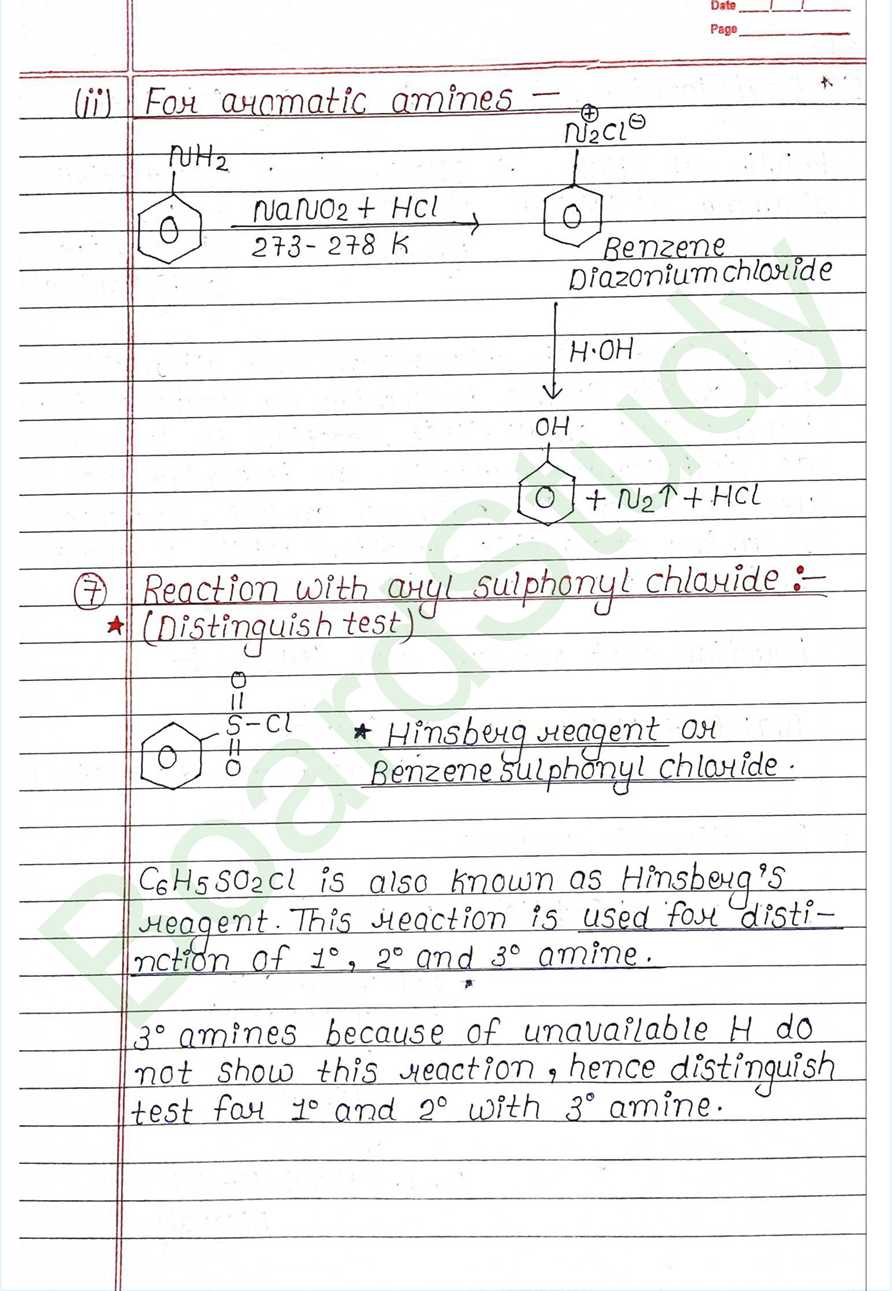 Date __/__/__
Page ______
(ii) For aromatic amines –
NH₂
N₂⊕Cl⊖
NaNO₂ + HCl
273-278 K
Benzene
Diazonium chloride
H·OH
OH
+ N₂↑ + HCl
⑦ Reaction with aryl sulphonyl chloride :-
★ (Distinguish test)
O
||
S-Cl
||
O
★ Hinsberg reagent or
Benzene sulphonyl chloride.
C₆H₅SO₂Cl is also known as Hinsberg's
reagent. This reaction is used for disti-
nction of 1°, 2° and 3° amine.
3° amines because of unavailable H do
not show this reaction, hence distinguish
test for 1° and 2° with 3° amine.
BoardStudy